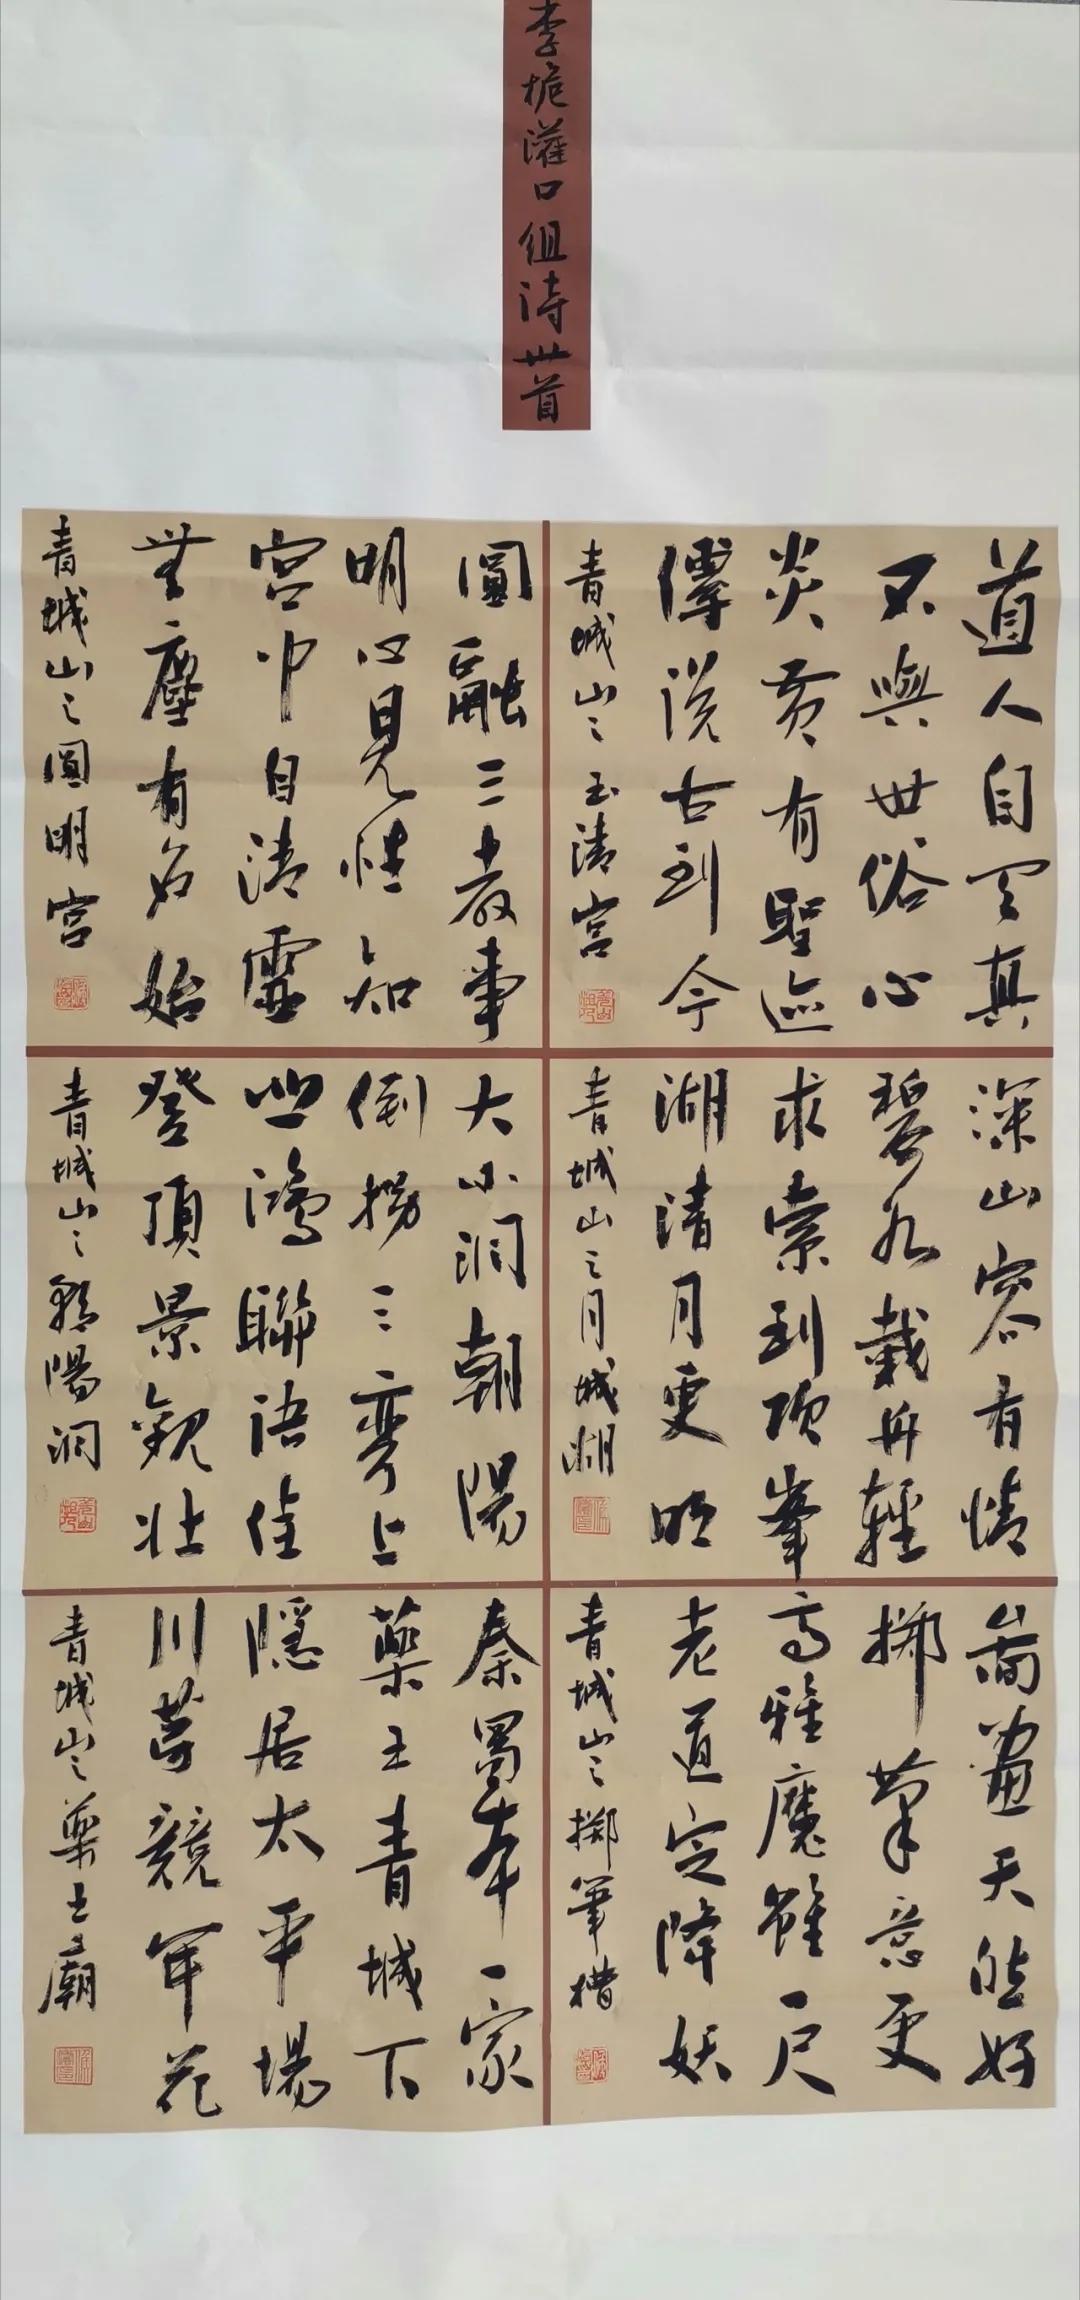 李桅灌口组诗卅首
道人自天真
不與世俗心
炎黄有聖迹
傳説古到今
青城山之玉清宫
圓融三教事
明心見性知
宫中自清靈
無塵有名始
青城山之圓明宫
深山容有情
碧水载舟輕
求索到顶峯
湖清月更明
青城山之月城湖
大小洞朝陽
倒拐三彎上
悲鴻聯語佳
登頂景觀壮
青城山之朝陽洞
畫天然好
掷筆意更高
雅魔雖一尺
老道定降妖
青城山之掷筆槽
秦蜀本一家
藥王青城下
隱居太平場
川芎競年花
青城山之藥王廟